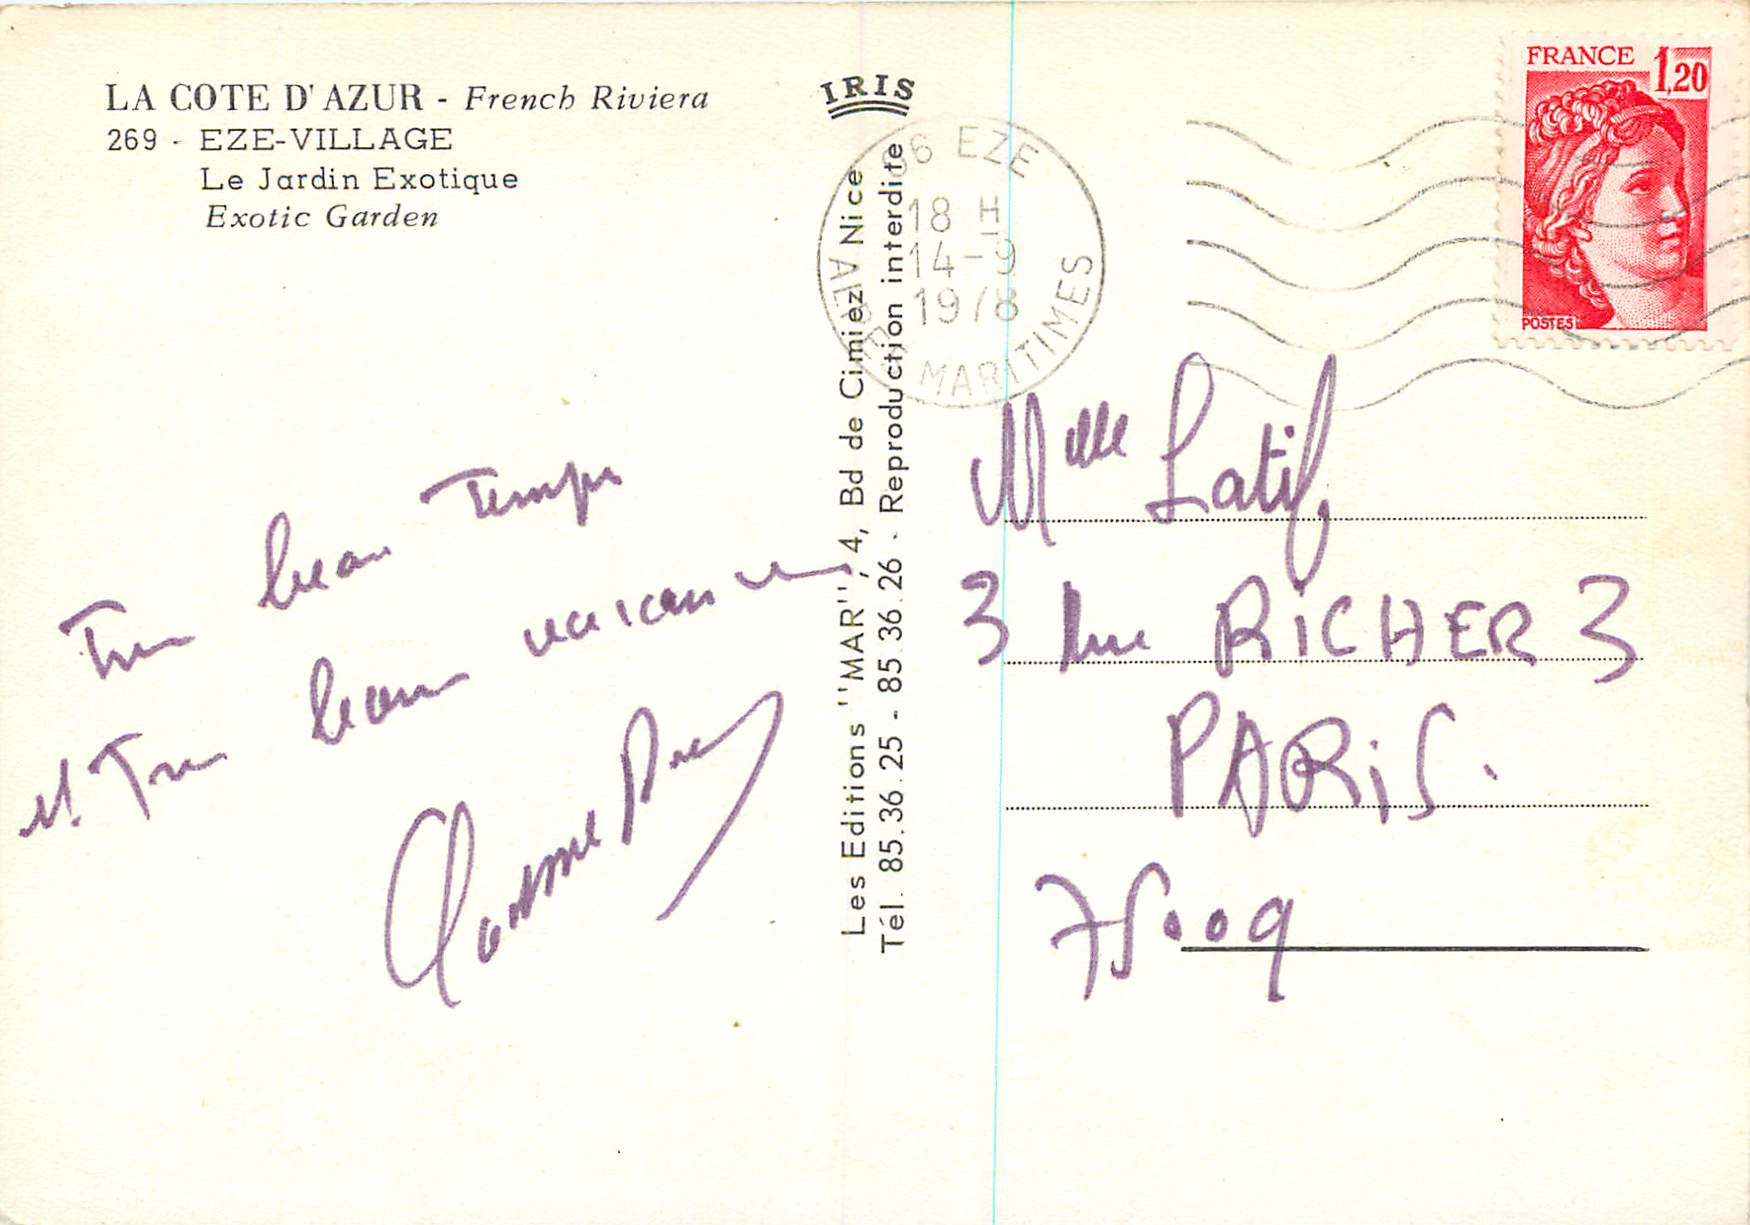 LA COTE D'AZUR - French Riviera
269 - EZE-VILLAGE
Le Jardin Exotique
Exotic Garden
IRIS
Les Editions "MAR", 4, Bd de Cimiez - Nice
Tél. 85.36.25 - 85.36.26 - Reproduction interdite
06 EZE
18 H
14-9
1978
ALPES MARITIMES
FRANCE 1,20
POSTES
Très beau Temps
et Très beaux vacances
Mlle Latif,
3 Rue RICHER 3
PARIS.
75009